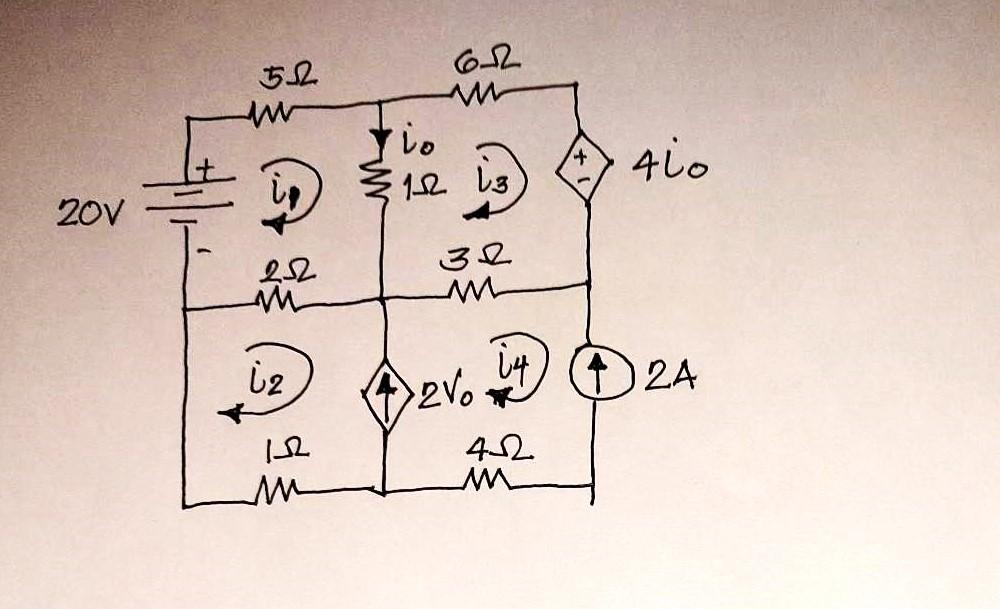 5Ω
6Ω
+
i₀
20V
i₁
1Ω
i₃
+
-
4i₀
-
2Ω
3Ω
i₂
2V₀
i₄
2A
1Ω
4Ω